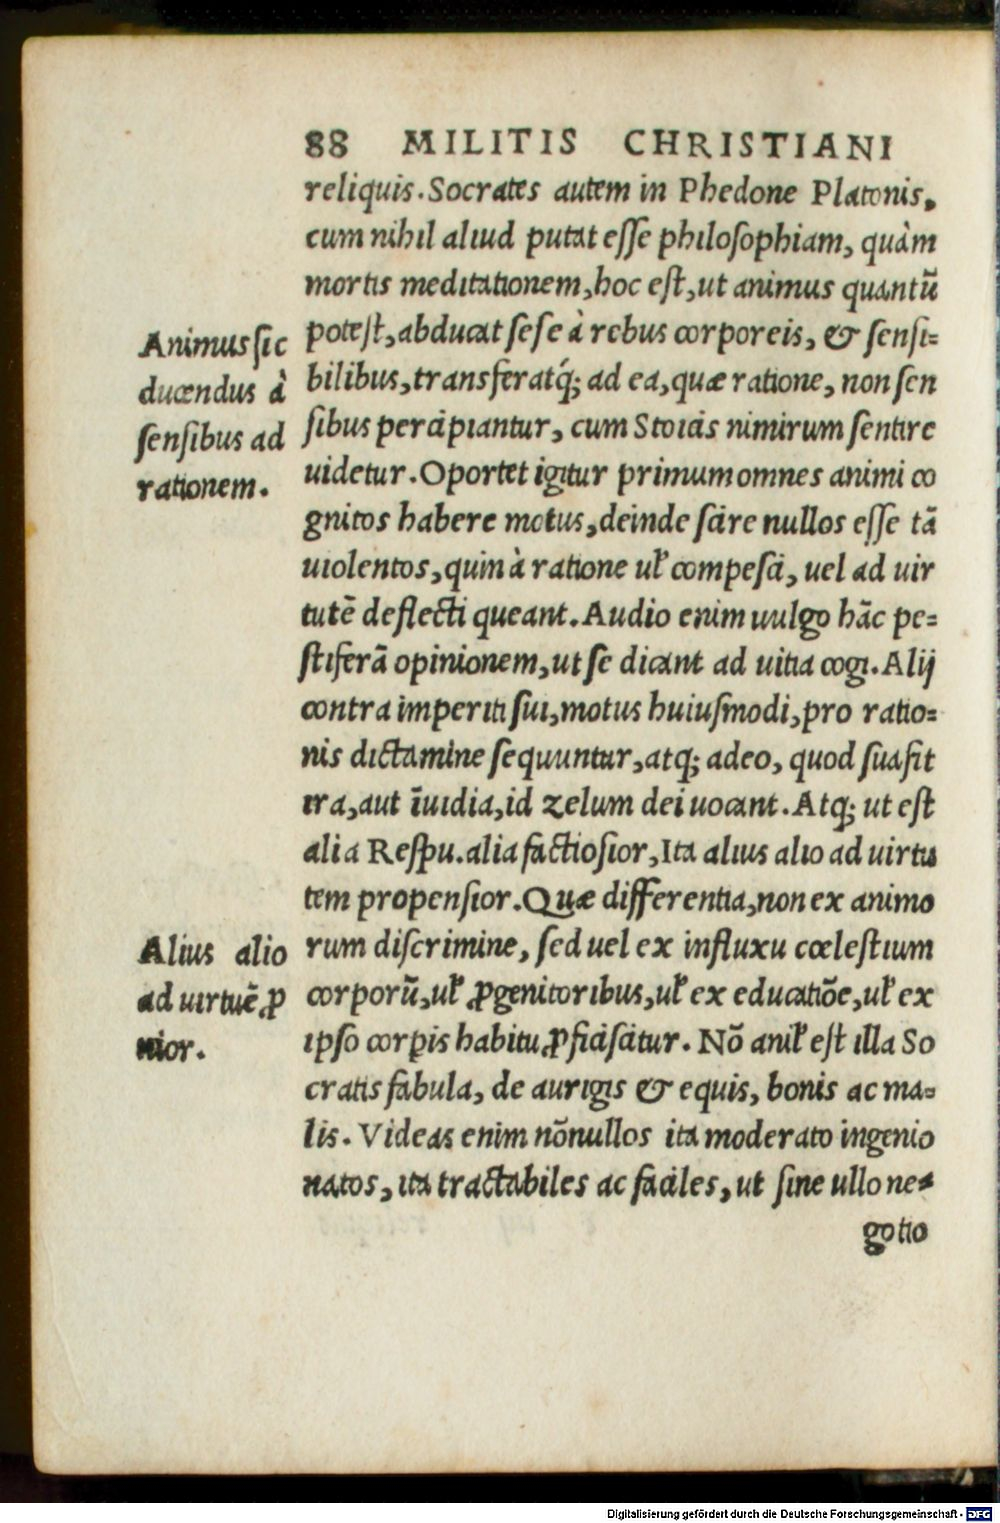 88 MILITIS CHRISTIANI
reliquis. Socrates autem in Phedone Platonis,
cum nihil aliud putat esse philosophiam, quàm
mortis meditationem, hoc est, ut animus quantū
potest, abducat sese à rebus corporeis, & sensi=
bilibus, transferatq́; ad ea, quæ ratione, non sen
sibus percipiantur, cum Stoicis nimirum sentire
uidetur. Oportet igitur primum omnes animi co
gnitos habere motus, deinde scire nullos esse tā
uiolentos, quin à ratione uꝉ compesci, uel ad uir
tutē deflecti queant. Audio enim uulgo hāc pe=
stiferā opinionem, ut se dicant ad uitia cogi. Alij
contra imperiti sui, motus huiusmodi, pro ratio=
nis dictamine sequuntur, atq; adeo, quod suasit
ira, aut īuidia, id zelum dei uocant. Atq; ut est
alia Respu. alia factiosior, Ita alius alio ad uirtu
tem propensior. Quæ differentia, non ex animo
rum discrimine, sed uel ex influxu cœlestium
corporū, uꝉ ꝓgenitoribus, uꝉ ex educatiōe, uꝉ ex
ipso corꝑis habitu ꝓficiscitur. Nō aniꝉ est illa So
cratis fabula, de aurigis & equis, bonis ac ma=
lis. Videas enim nōnullos ita moderato ingenio
natos, ita tractabiles ac faciles, ut sine ullo ne=
gotio
Animus sic
ducendus à
sensibus ad
rationem.
Alius alio
ad uirtutē, ꝓ
nior.
Digitalisierung gefördert durch die Deutsche Forschungsgemeinschaft - DFG